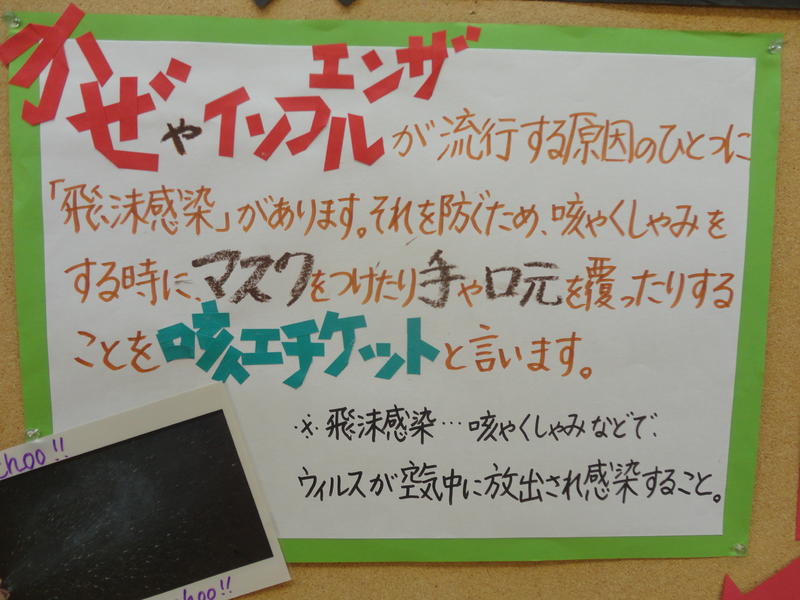 かぜやインフルエンザが流行する原因のひとつに
「飛沫感染」があります。それを防ぐため、咳やくしゃみを
する時に、マスクをつけたり手や口元を覆ったりする
ことを咳エチケットと言います。
※飛沫感染…咳やくしゃみなどで、
ウィルスが空気中に放出され感染すること。
choo!!
choo!!